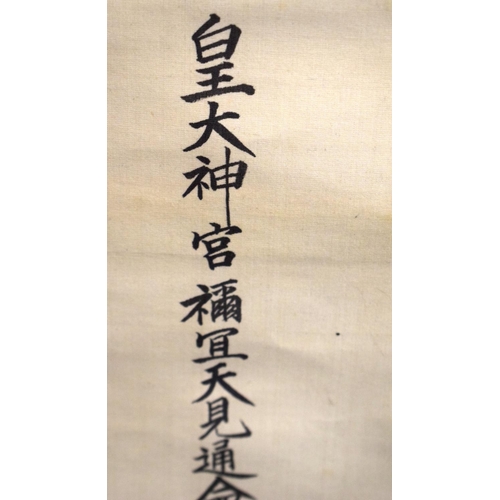 皇大神宮禰冝天見通